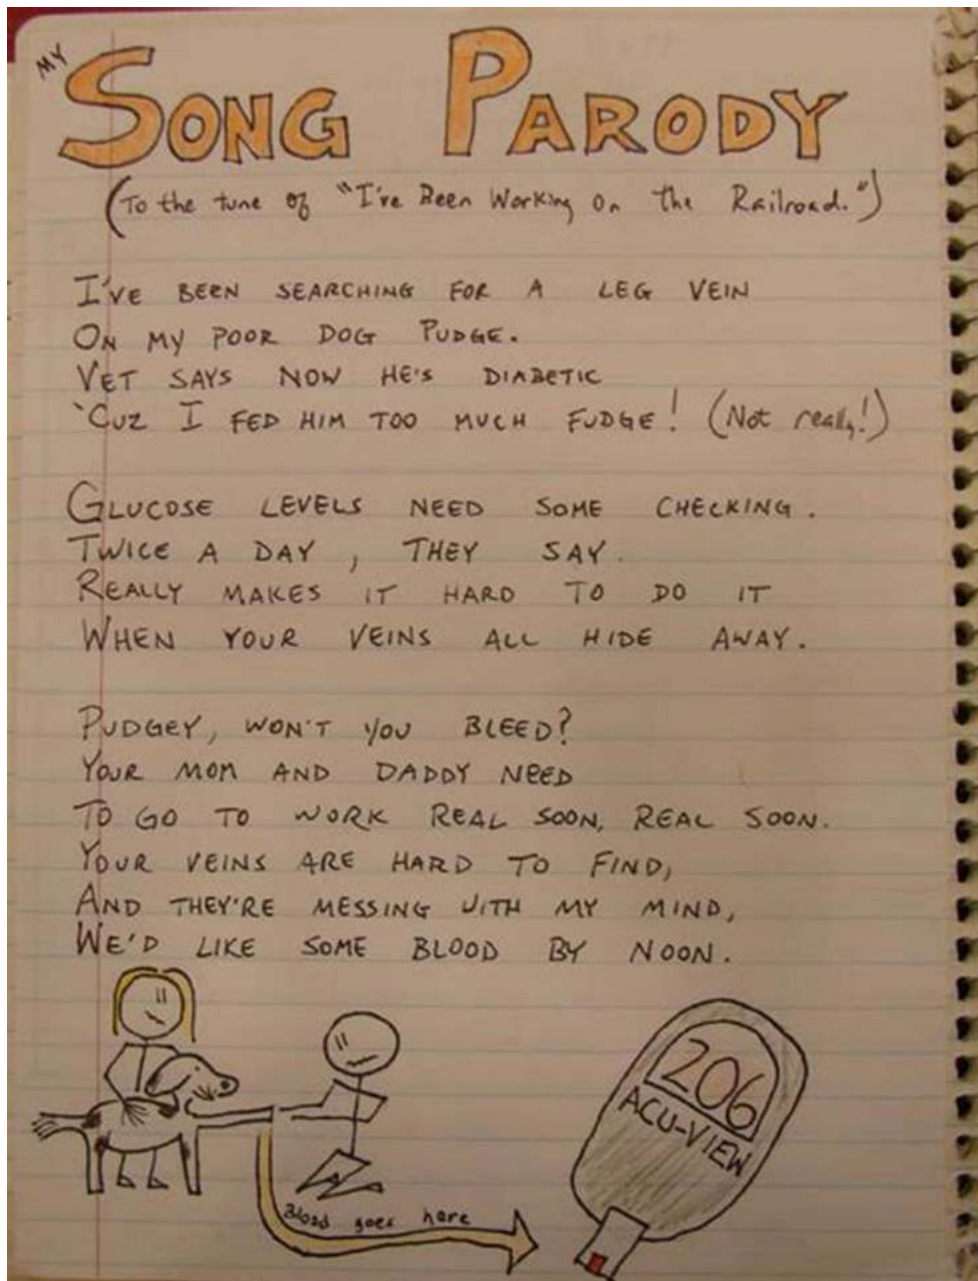 MY
SONG PARODY
(To the tune of "I've Been Working On The Railroad.")
I'VE BEEN SEARCHING FOR A LEG VEIN
ON MY POOR DOG PUDGE.
VET SAYS NOW HE'S DIABETIC
'CUZ I FED HIM TOO MUCH FUDGE! (Not really!)
GLUCOSE LEVELS NEED SOME CHECKING.
TWICE A DAY, THEY SAY.
REALLY MAKES IT HARD TO DO IT
WHEN YOUR VEINS ALL HIDE AWAY.
PUDGEY, WON'T YOU BLEED?
YOUR MOM AND DADDY NEED
TO GO TO WORK REAL SOON, REAL SOON.
YOUR VEINS ARE HARD TO FIND,
AND THEY'RE MESSING WITH MY MIND,
WE'D LIKE SOME BLOOD BY NOON.
206
ACU-VIEW
Blood goes here